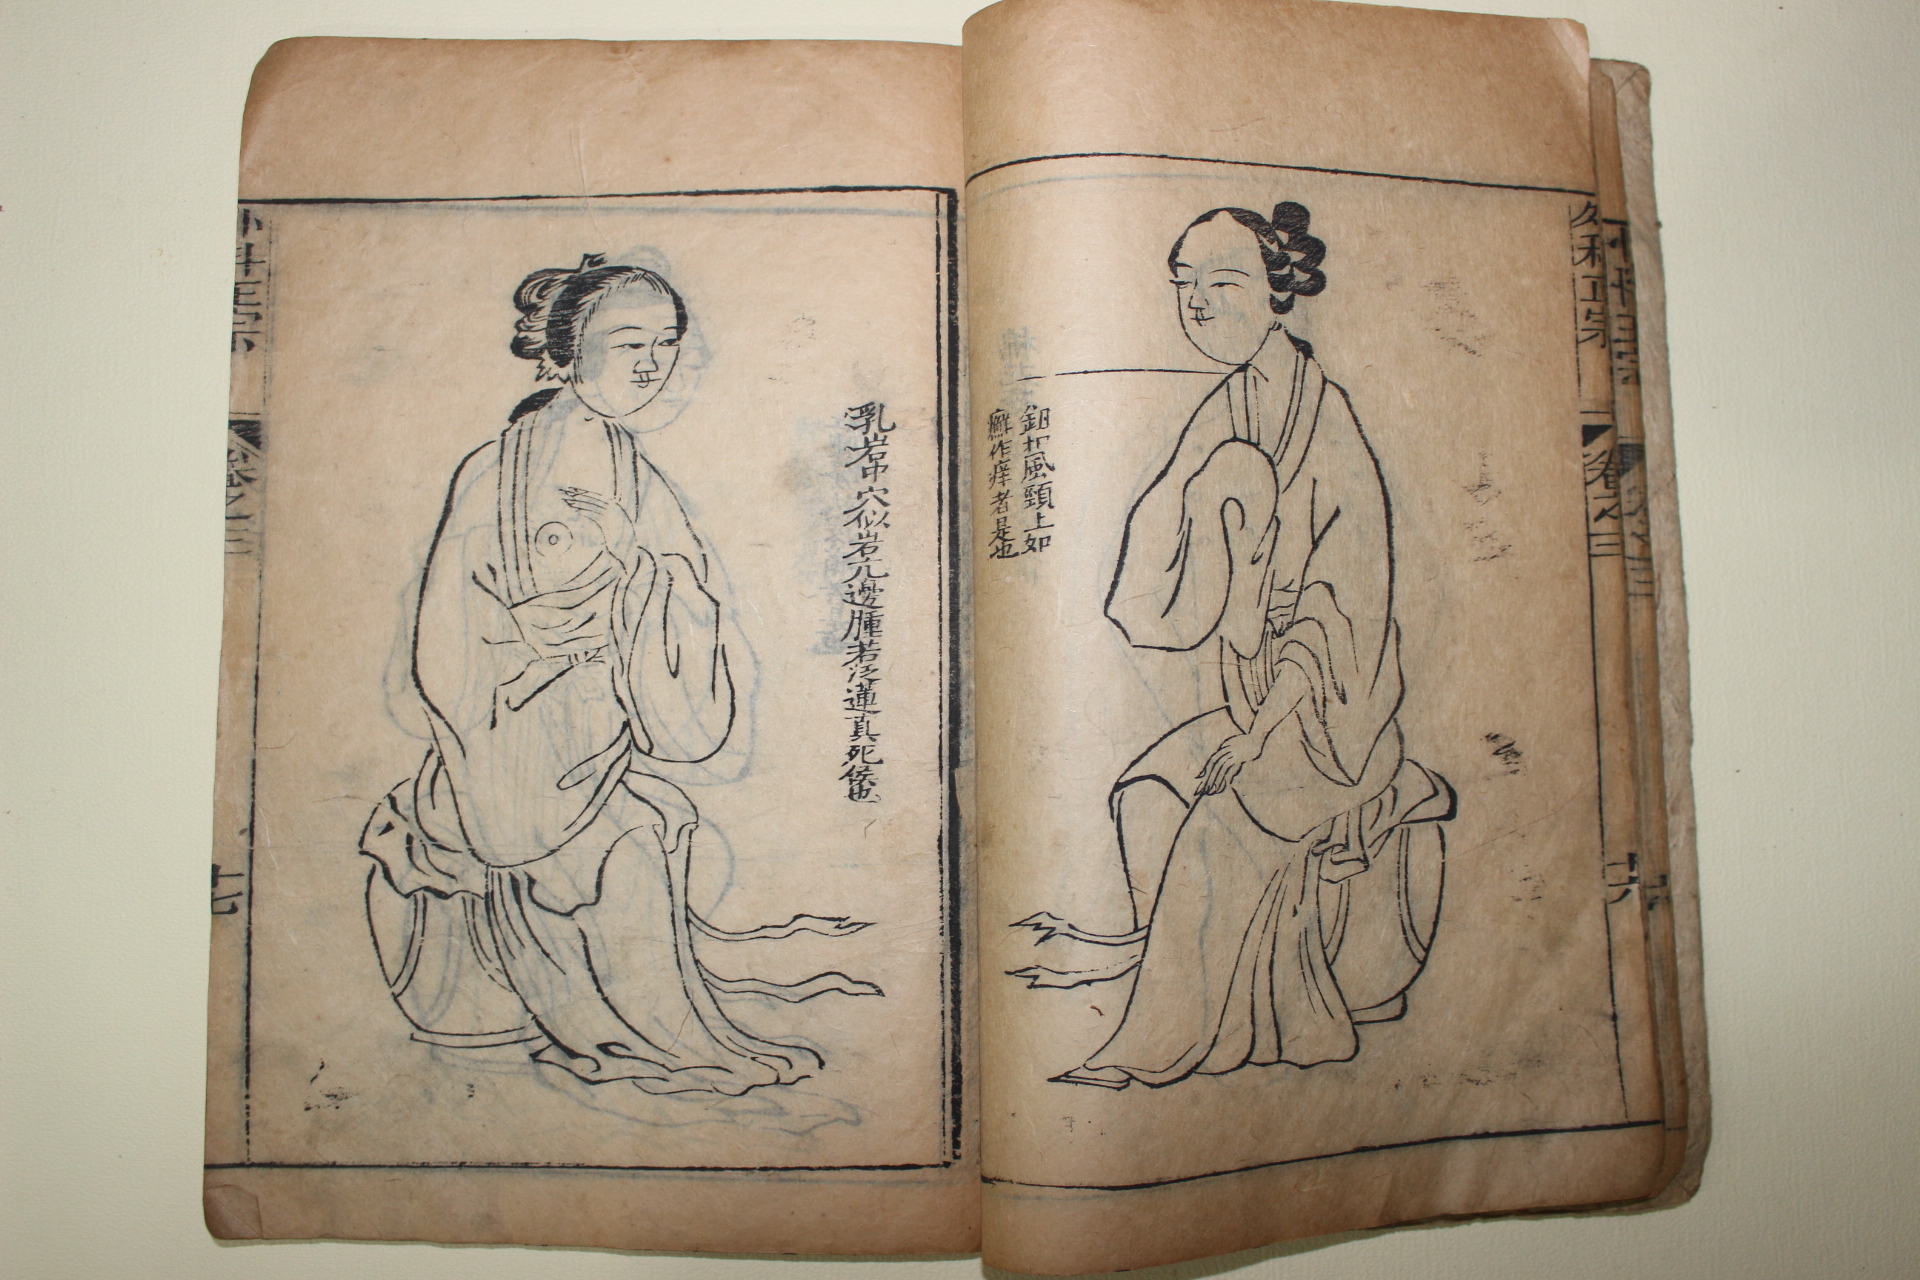 外科正宗
卷之三
十六
鈕扣風頸上如
癬作痒者是也
乳岩中穴似岩穴邊腫若泛蓮真死候也
外科正宗
卷之三
十七